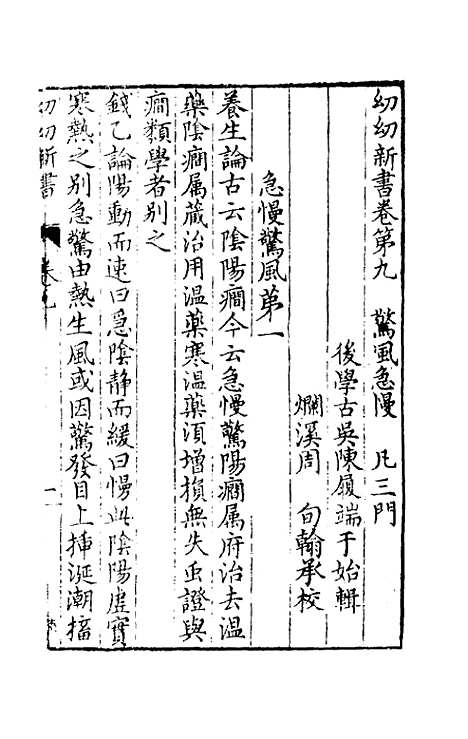 幼幼新書卷第九　驚風急慢　凡三門
後學古吳陳履端于始輯
爛溪周　旬翰承校
急慢驚風第一
養生論古云陰陽癇今云急慢驚陽癇属府治去温
藥陰癇属藏治用温藥寒温藥湏增損無失虫證與
癇類學者别之
錢乙論陽動而速曰急陰静而緩曰慢此陰陽虚實
寒熱之别急驚由熱生風或因驚發目上揷涎潮搐
幼幼新書　卷之九　一